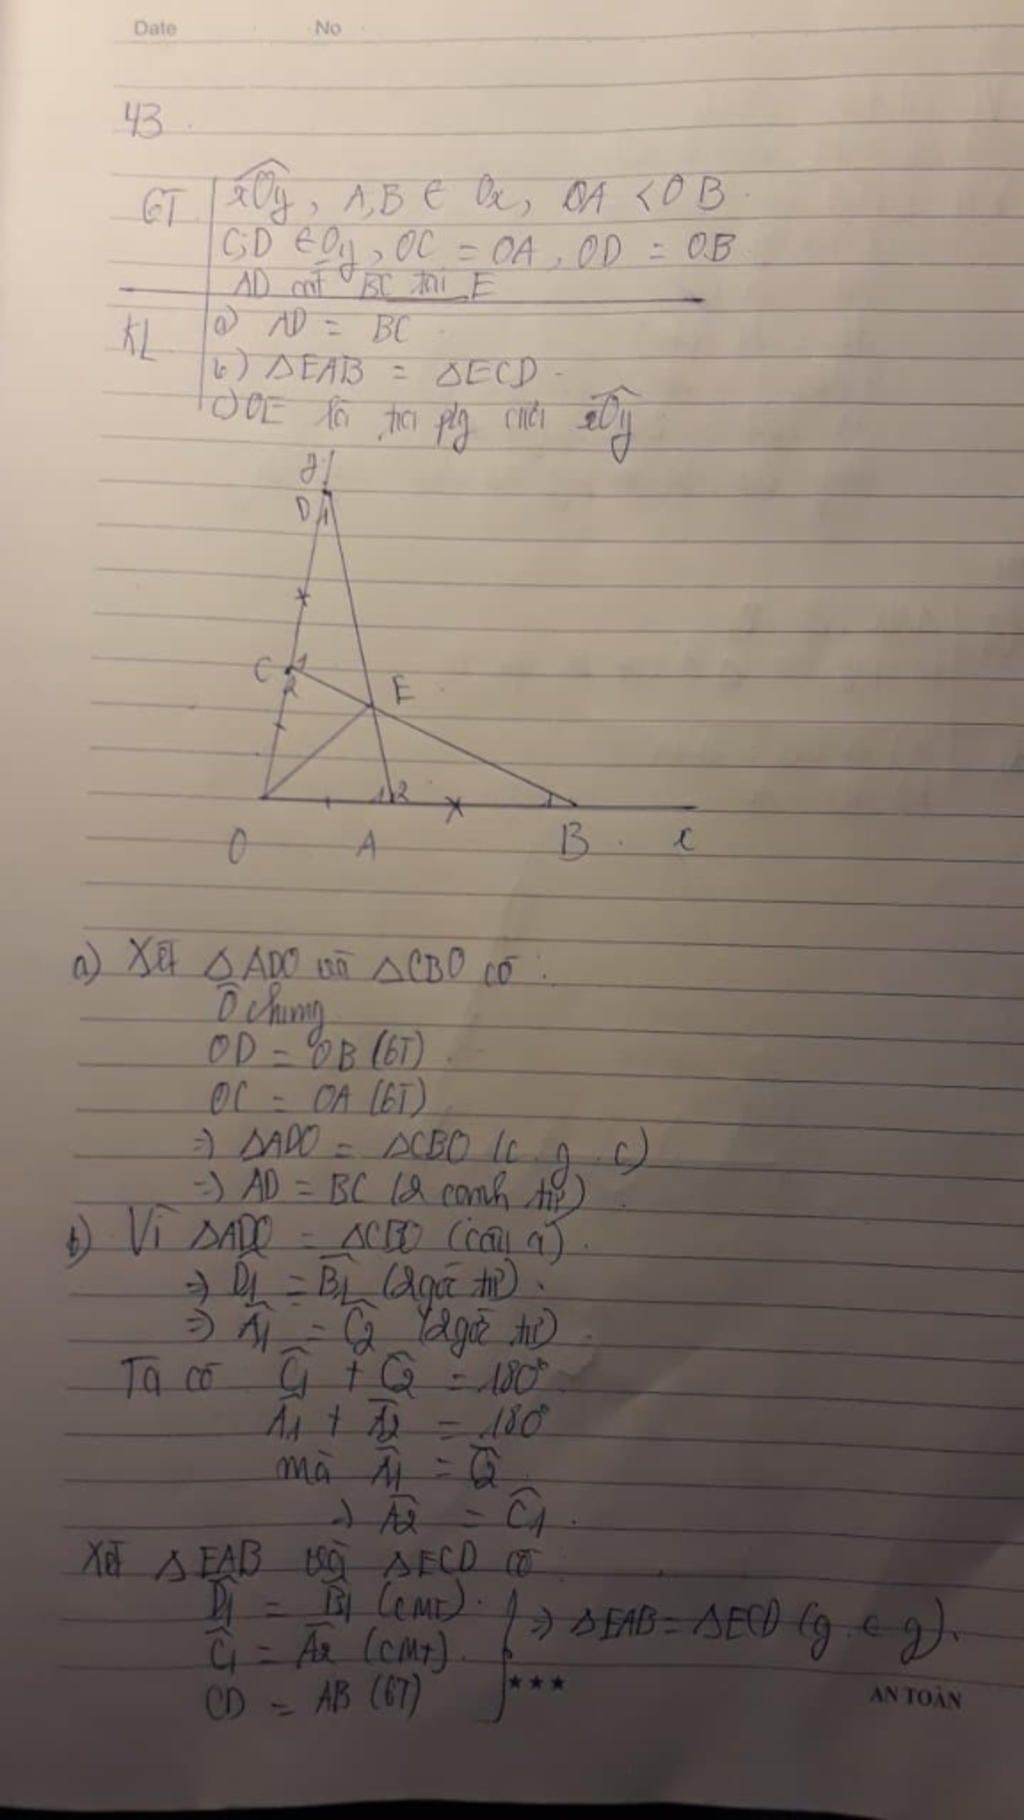 Date No
43
GT xOy, A,B ∈ Ox, OA < OB
C;D ∈ Oy, OC = OA, OD = OB
AD cắt BC tại E
KL a) AD = BC
b) ΔEAB = ΔECD
c) OE là tia p/g của xOy
y
D 1
C 1
2
E
1 2 1
O A B x
a) Xét ΔADO và ΔCBO có :
Ô chung
OD = OB (GT)
OC = OA (GT)
=> ΔADO = ΔCBO (c.g.c)
=> AD = BC (2 cạnh tư)
b) Vì ΔADO = ΔCBO (câu a)
=> D̂1 = B̂1 (2 góc tư)
=> Â1 = Ĉ2 (2 góc tư)
Ta có Ĉ1 + Ĉ2 = 180°
Â1 + Â2 = 180°
mà Â1 = Ĉ2
=> Â2 = Ĉ1
Xét ΔEAB và ΔECD có
D̂1 = B̂1 (CMT)
Ĉ1 = Â2 (CMT)
CD = AB (GT)
=> ΔEAB = ΔECD (g.c.g).
*** AN TOÀN